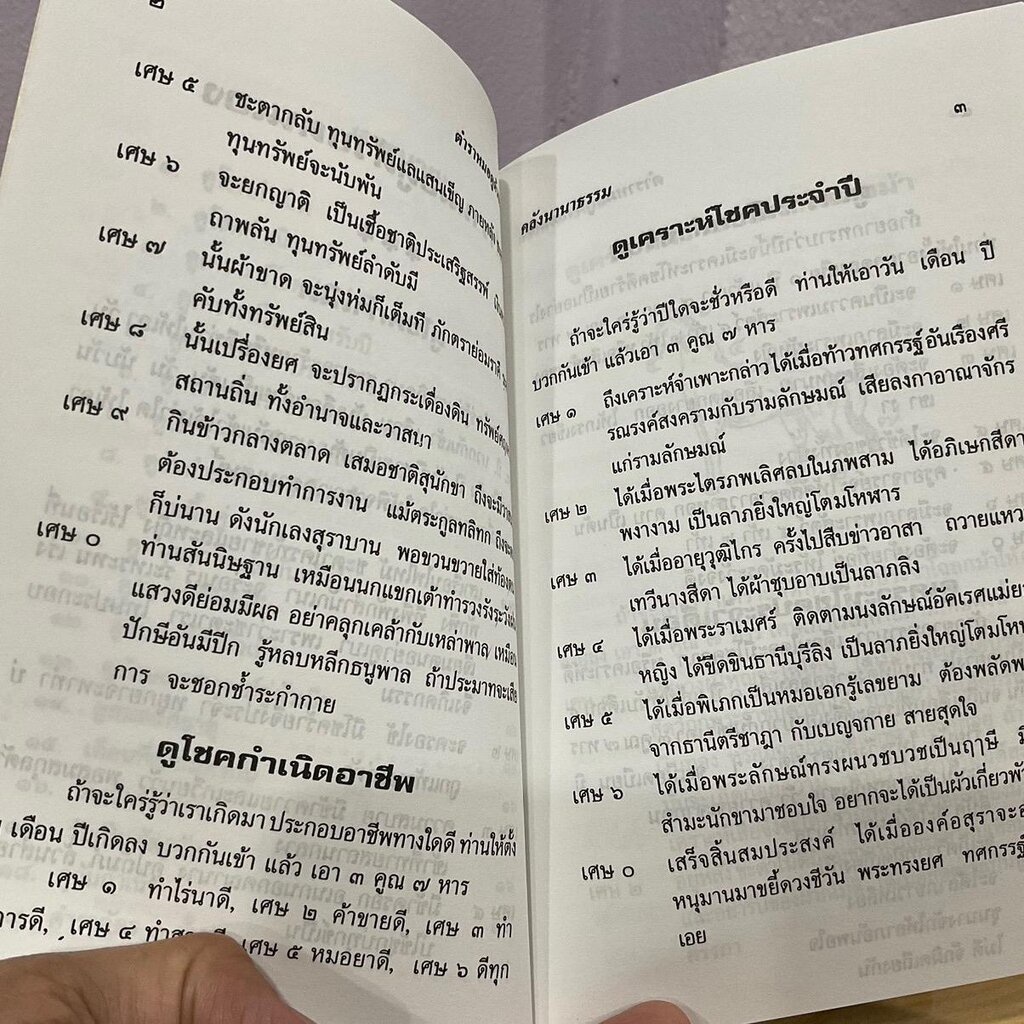 ๒
เศษ ๕ ชะตากลับ ทุนทรัพย์แลแสนเข็ญ ภายหลัง
ทุนทรัพย์จะนับพัน
เศษ ๖ จะยกญาติ เป็นเชื้อชาติประเสริฐสรรพ์
ถาพลัน ทุนทรัพย์ลำดับมี
เศษ ๗ นั้นผ้าขาด จะนุ่งห่มก็เต็มที ภักตราย่อมราศี
คับทั้งทรัพย์สิน
เศษ ๘ นั้นเปรื่องยศ จะปรากฏกระเดื่องดิน
สถานถิ่น ทั้งอำนาจและวาสนา
เศษ ๙ กินข้าวกลางตลาด เสมอชาติสุนักขา ถึงจะมี
ต้องประกอบทำการงาน แม้ตระกูลทลิทก
ก็บ่นาน ดังนักเลงสุราบาน พอขวนขวายใส่ท้อง
เศษ ๐ ท่านสันนิษฐาน เหมือนนกแขกเต้าทำรวงรังระวัง
แสวงดีย่อมมีผล อย่าคลุกเคล้ากับเหล่าพาล เหมือน
ปักษีอันมีปีก รู้หลบหลีกธนูพาล ถ้าประมาทจะเสีย
การ จะชอกช้ำระกำกาย
ดูโชคกำเนิดอาชีพ
ถ้าจะใคร่รู้ว่าเราเกิดมาประกอบอาชีพทางใดดี ท่านให้ตั้ง
เดือน ปีเกิดลง บวกกันเข้า แล้ว เอา ๓ คูณ ๗ หาร
เศษ ๑ ทำไร่นาดี, เศษ ๒ ค้าขายดี, เศษ ๓ ทำ
การดี, เศษ ๔ เศษ ๕ หมอยาดี, เศษ ๖ ดีทุก
๓
คลังนานาธรรม
ดูเคราะห์โชคประจำปี
ถ้าจะใคร่รู้ว่าปีใดจะชั่วหรือดี ท่านให้เอาวัน เดือน ปี
บวกกันเข้า แล้วเอา ๓ คูณ ๗ หาร
เศษ ๑ ถึงเคราะห์จำเพาะกล่าวได้เมื่อท้าวทศกรรฐ์อันเรืองศรี
รณรงค์สงครามกับรามลักษมณ์ เสียลงกาอาณาจักร
แก่รามลักษมณ์
เศษ ๒ ได้เมื่อพระไตรภพเลิศลบในภพสาม ได้อภิเษกสีดา
พงางาม เป็นลาภยิ่งใหญ่โตมโหฬาร
เศษ ๓ ได้เมื่ออายุวุฒิไกร ครั้งไปสืบข่าวอาสา ถวายแหว
เทวีนางสีดา ได้ผ้าชุบอาบเป็นลาภลิง
เศษ ๔ ได้เมื่อพระราเมศร์ ติดตามนงลักษณ์อัคเรศแม่ย
หญิง ได้ขีดขินธานีบุรีลิง เป็นลาภยิ่งใหญ่โตมโห
เศษ ๕ ได้เมื่อพิเภกเป็นหมอเอกรู้เลขยาม ต้องพลัดพ
จากธานีตรีชาฎา กับเบญจกาย สายสุดใจ
เศษ ๖ ได้เมื่อพระลักษณ์ทรงผนวชบวชเป็นฤาษี มี
สำมะนักขามาชอบใจ อยากจะได้เป็นผัวเกี่ยวพัน
เศษ ๐ เสร็จสิ้นสมประสงค์ ได้เมื่อองค์อสุราจะอ
หนุมานมาขยี้ดวงชีวัน พระทรงยศ ทศกรรฐ์
เอย